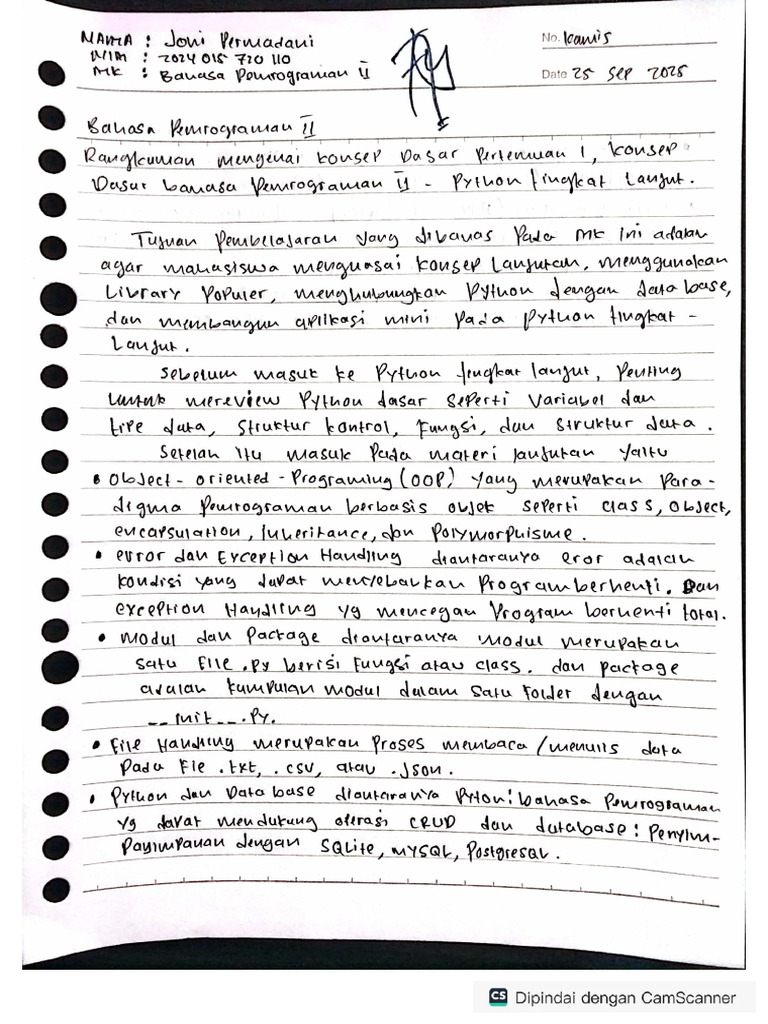 NAMA : Joni Permadani
No. Kamis
NIM : 2024 015 720 110
MK : Bahasa Pemrograman II
Date 25 Sep 2025
Bahasa Pemrograman II
Rangkuman mengenai konsep Dasar Pertemuan 1, konsep
Dasar bahasa Pemrograman II - Python tingkat Lanjut.
Tujuan Pembelajaran yang dibahas Pada MK ini adalah
agar mahasiswa menguasai konsep Lanjutan, menggunakan
Library Populer, menghubungkan Python dengan database,
dan membangun aplikasi mini pada Python tingkat -
Lanjut.
Sebelum masuk ke Python tingkat lanjut, Penting
untuk mereview Python dasar seperti Variabel dan
tipe data, Struktur kontrol, Fungsi, dan Struktur data.
Setelah Itu masuk Pada materi lanjutan yaitu
• Object - oriented - Programing (OOP) yang merupakan Para-
digma Pemrograman berbasis objek seperti class, Object,
encapsulation, Inheritance, dan Polymorphisme.
• error dan Exception Handling diantaranya eror adalah
kondisi yang dapat menyebabkan Program berhenti. Dan
exception Handling yg mencegah Program berhenti total.
• Modul dan Package diantaranya modul merupakan
satu File .py berisi fungsi atau class. dan package
adalah kumpulan modul dalam satu folder dengan
__init__.Py.
• File Handling merupakan Proses membaca / menulis data
pada File .txt, .csv, atau .json.
• Python dan Database diantaranya Pyton: bahasa Pemrograman
yg dapat mendukung operasi CRUD dan database: Penyim-
Payimpanan dengan SQLite, MYSQL, Postgresql.
CS Dipindai dengan CamScanner